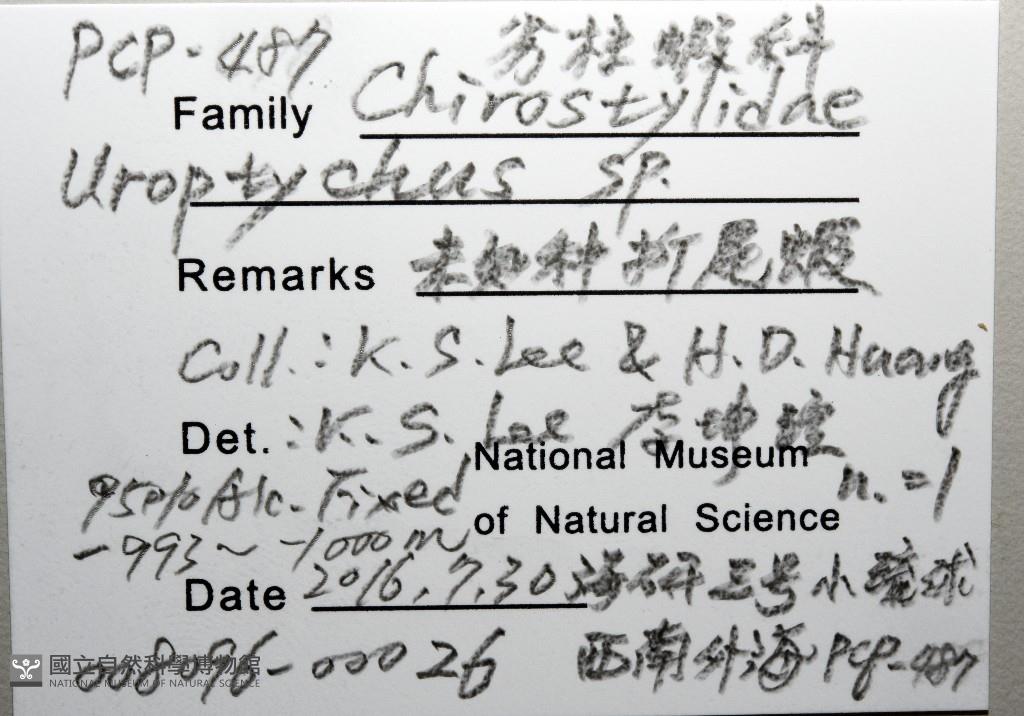 PCP-487 刍柱蝦科
Family Chirostylidae
Uroptychus sp.
Remarks 未知种折尾蝦
Coll.: K. S. Lee & H. D. Huang
Det.: K. S. Lee 李坤瑄
National Museum n.=1
95% Alc. Fixed
of Natural Science
-993~-1000m
Date 2016.7.30 海研三号小琉球
8096-00026 西南外海 PCP-487
國立自然科學博物館
NATIONAL MUSEUM OF NATURAL SCIENCE